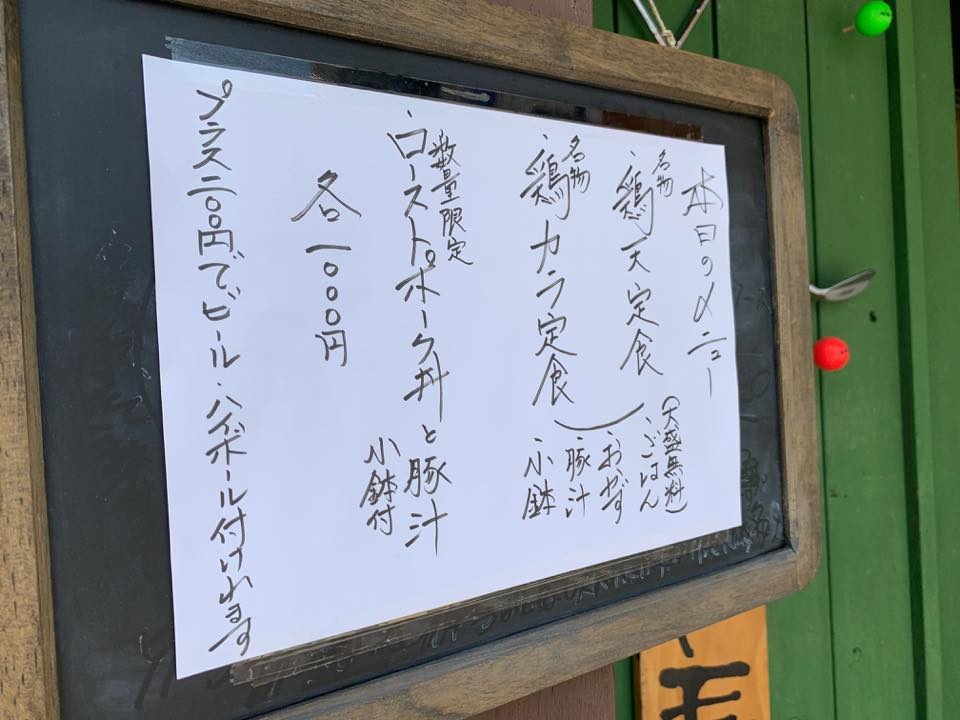 本日のメニュー
名物
・鶏天定食
名物
・鶏カラ定食
(大盛無料)
・ごはん
・おかず
・豚汁
小鉢
数量限定
・ローストポーク丼と豚汁
小鉢付
各一〇〇〇円
プラス二〇〇円でビール・ハイボール付けれます